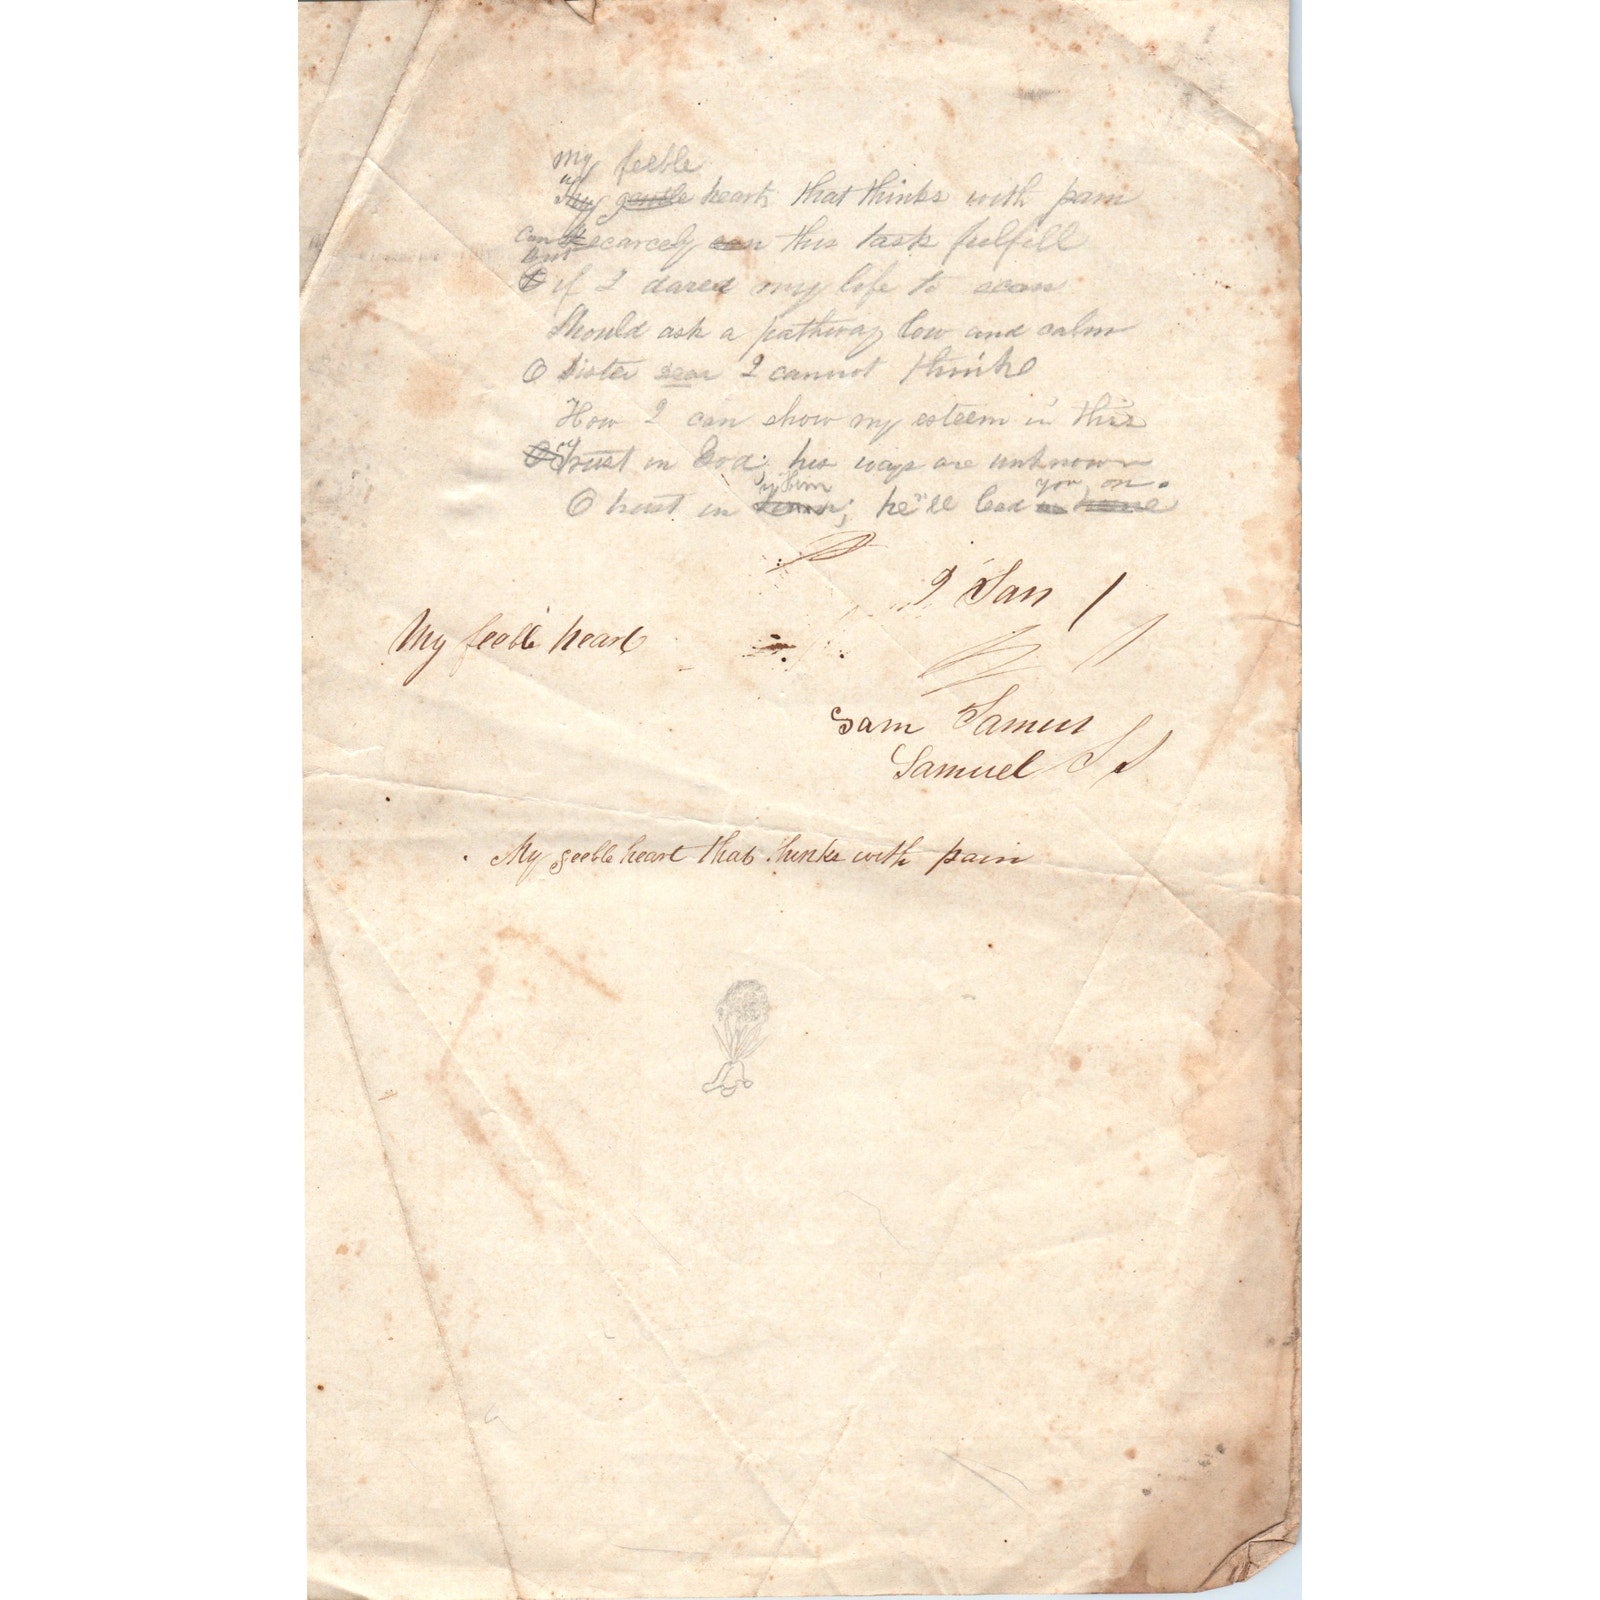 my feeble
Thy gentle heart, that thinks with pain
Can scarcely can this task fulfill
But
O if I dared my life to scan
Should ask a pathway low and calm
O Sister dear I cannot think
How I can show my esteem in this
O Trust in God; his ways are unknown
him you on.
O trust in; he'll lead
I San
My feeble heart
Sam Samu
Samuel S S
My feeble heart that thinks with pain